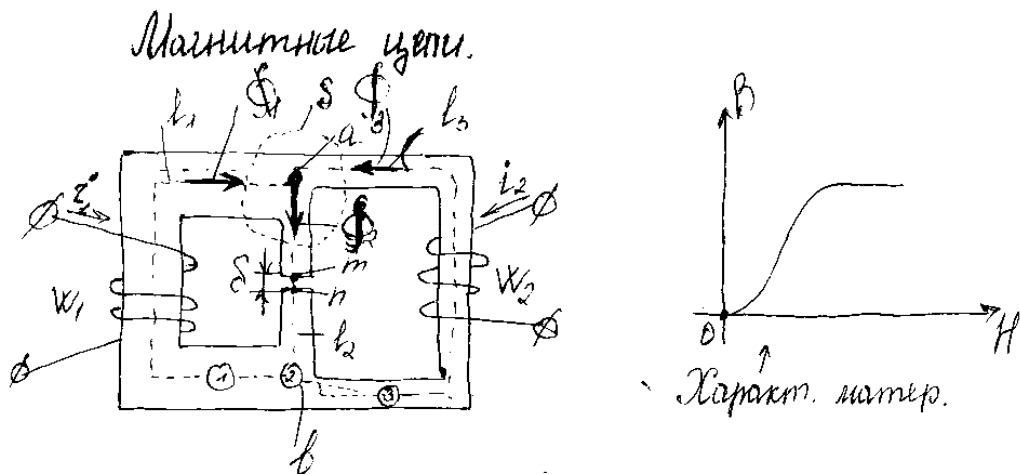 Магнитные цепи.
l₁ Ф₁ S Ф₃ a l₃
i₁ i₂
Ф₂
δ m
n
W₁ W₂
l₂
1 2 3
b
B
0 H
Характ. матер.